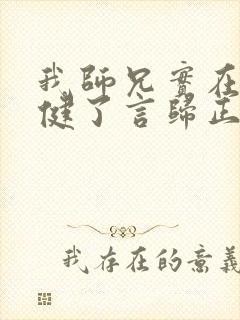 我師兄實在
健了言歸正
我存在的意義